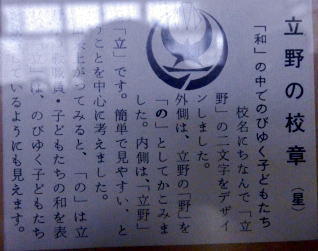 立野の校章（星）
「和」の中でのびゆく子どもたち
校名にちなんで「立
野」の二文字をデザイ
ンしました。
外側は、立野の「野」を
「の」としてかこみま
した。内側は、「立野」
「立」です。簡単で見やすい、と
うことを中心に考えました。
上がってみると、「の」は立
教職員・子どもたちの和を表
は、のびゆく子どもたち
ているようにも見えます。